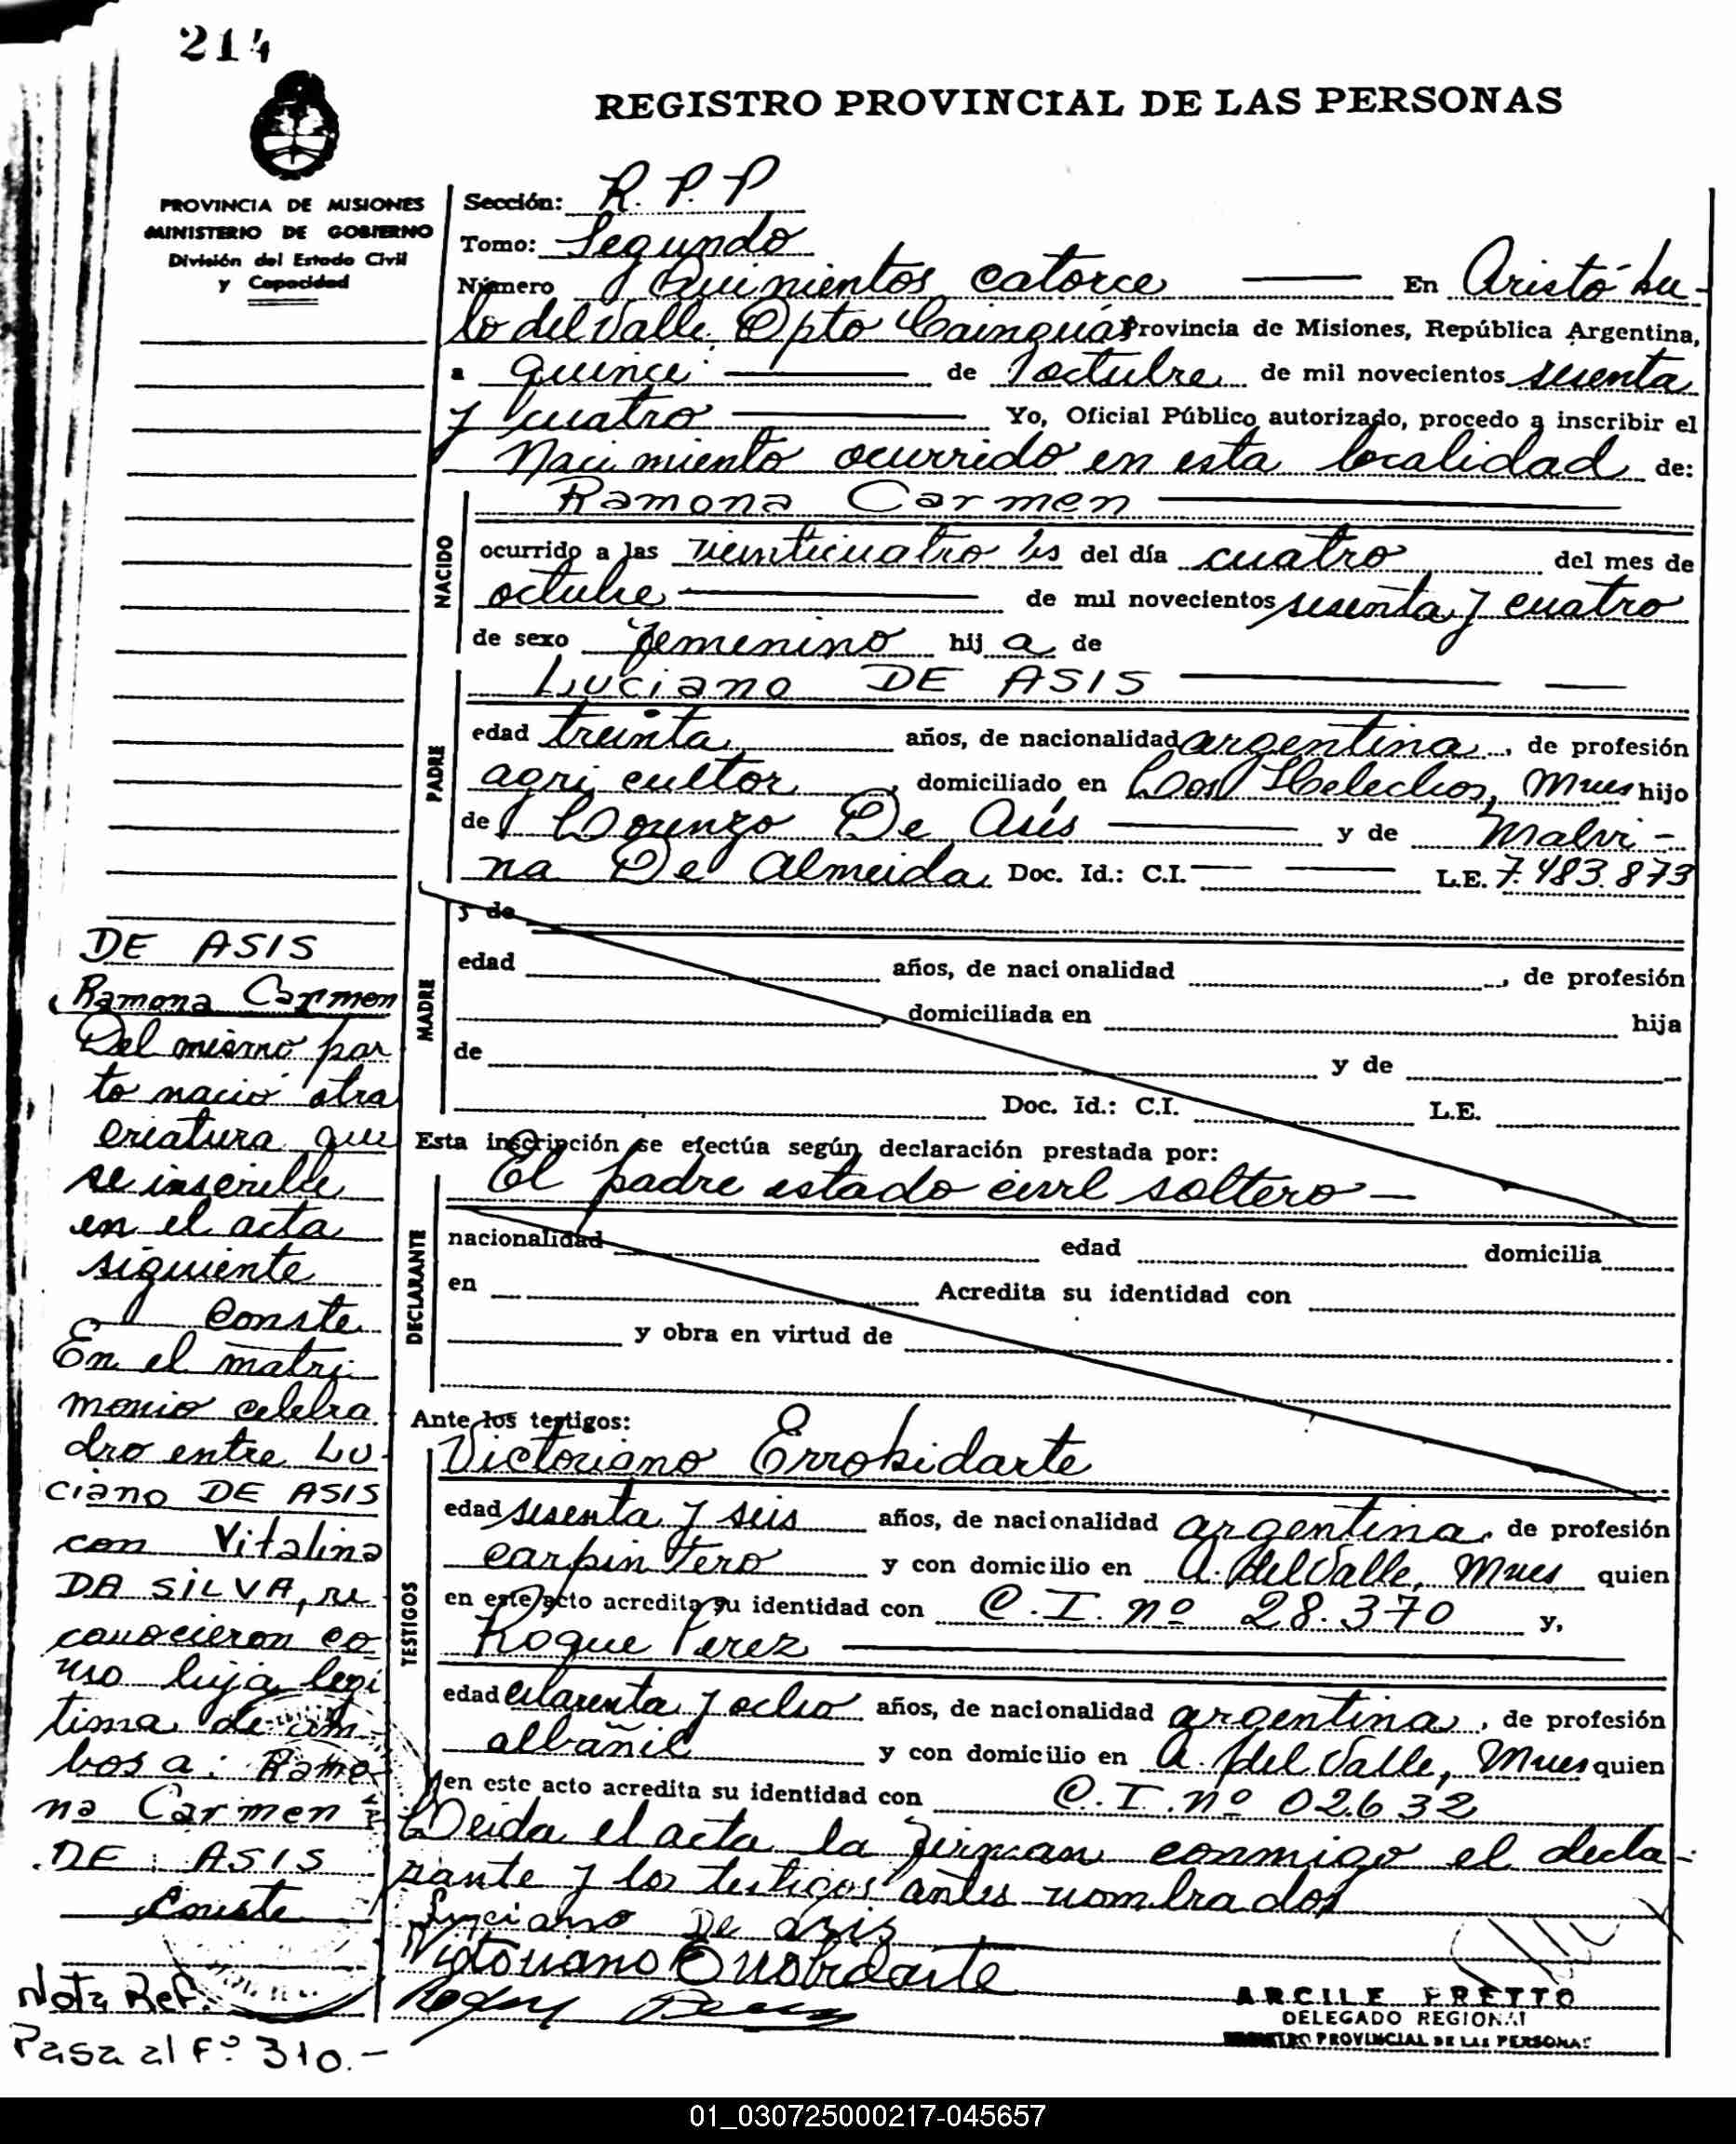 214
REGISTRO PROVINCIAL DE LAS PERSONAS
PROVINCIA DE MISIONES
MINISTERIO DE GOBIERNO
División del Estado Civil
y Capacidad
Sección: R. P. P
Tomo: Segundo
Número Quinientos catorce En Aristóbu-
lo del Valle, Dpto Cainguás Provincia de Misiones, República Argentina,
a quince de octubre de mil novecientos sesenta
y cuatro Yo, Oficial Público autorizado, procedo a inscribir el
Nacimiento ocurrido en esta localidad de:
NACIDO
Ramona Carmen
ocurrido a las veinticuatro hs del día cuatro del mes de
octubre de mil novecientos sesenta y cuatro
de sexo femenino hij a de
PADRE
Luciano DE ASIS
edad treinta años, de nacionalidad argentina, de profesión
agricultor, domiciliado en Los Helechos, Mnes hijo
de Lorenzo De Asís y de Malvi-
na De Almeida Doc. Id.: C.I. L.E. 7.483.873
MADRE
y de
edad años, de nacionalidad , de profesión
, domiciliada en hija
de y de
Doc. Id.: C.I. L.E.
Esta inscripción se efectúa según declaración prestada por:
DECLARANTE
El padre estado civil soltero —
nacionalidad edad domicilia
en Acredita su identidad con
y obra en virtud de
Ante los testigos:
TESTIGOS
Victoriano Errobidarte
edad sesenta y seis años, de nacionalidad argentina, de profesión
carpintero y con domicilio en A. del Valle, Mnes quien
en este acto acredita su identidad con C.I. nº 28.370 y,
Roque Perez
edad cuarenta y ocho años, de nacionalidad argentina, de profesión
albañil y con domicilio en A. del Valle, Mnes quien
en este acto acredita su identidad con C.I. nº 02632
Leida el acta la firman conmigo el decla-
rante y los testigos antes nombrados
Luciano De azis
Victoriano Errobidarte
ARCILE PRETTO
DELEGADO REGIONAL
REGISTRO PROVINCIAL DE LAS PERSONAS
DE ASIS
Ramona Carmen
Del mismo par
to nació otra
criatura que
se inscribe
en el acta
siguiente
Conste
En el matri-
monio celebra
dro entre Lu-
ciano DE ASIS
con Vitalina
DA SILVA, re
conocieron co-
mo hija legi
tima de am-
bos a: Ramo
na Carmen
DE ASIS
Conste
Nota Ref.
Pasa al Fº 310.-
01_030725000217-045657